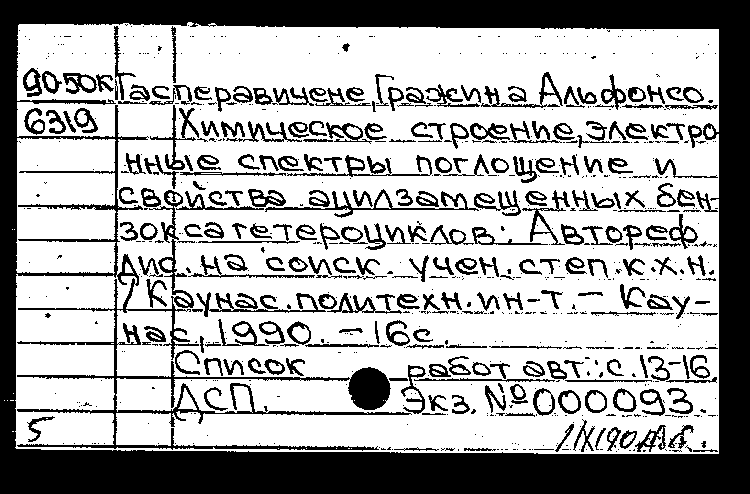 90-50К Гасперавичене, Гражина Альфонсо.
6319 Химическое строение, электро
нные спектры поглощение и
свойства ацилзамещенных бен-
зоксагетероциклов: Автореф.
дис. на соиск. учен. степ. к.х.н.
/ Каунас. политехн. ин-т. – Кау-
нас, 1990. – 16с.
Список работ авт.: с. 13-16.
ДСП. Экз. № 000093.
5